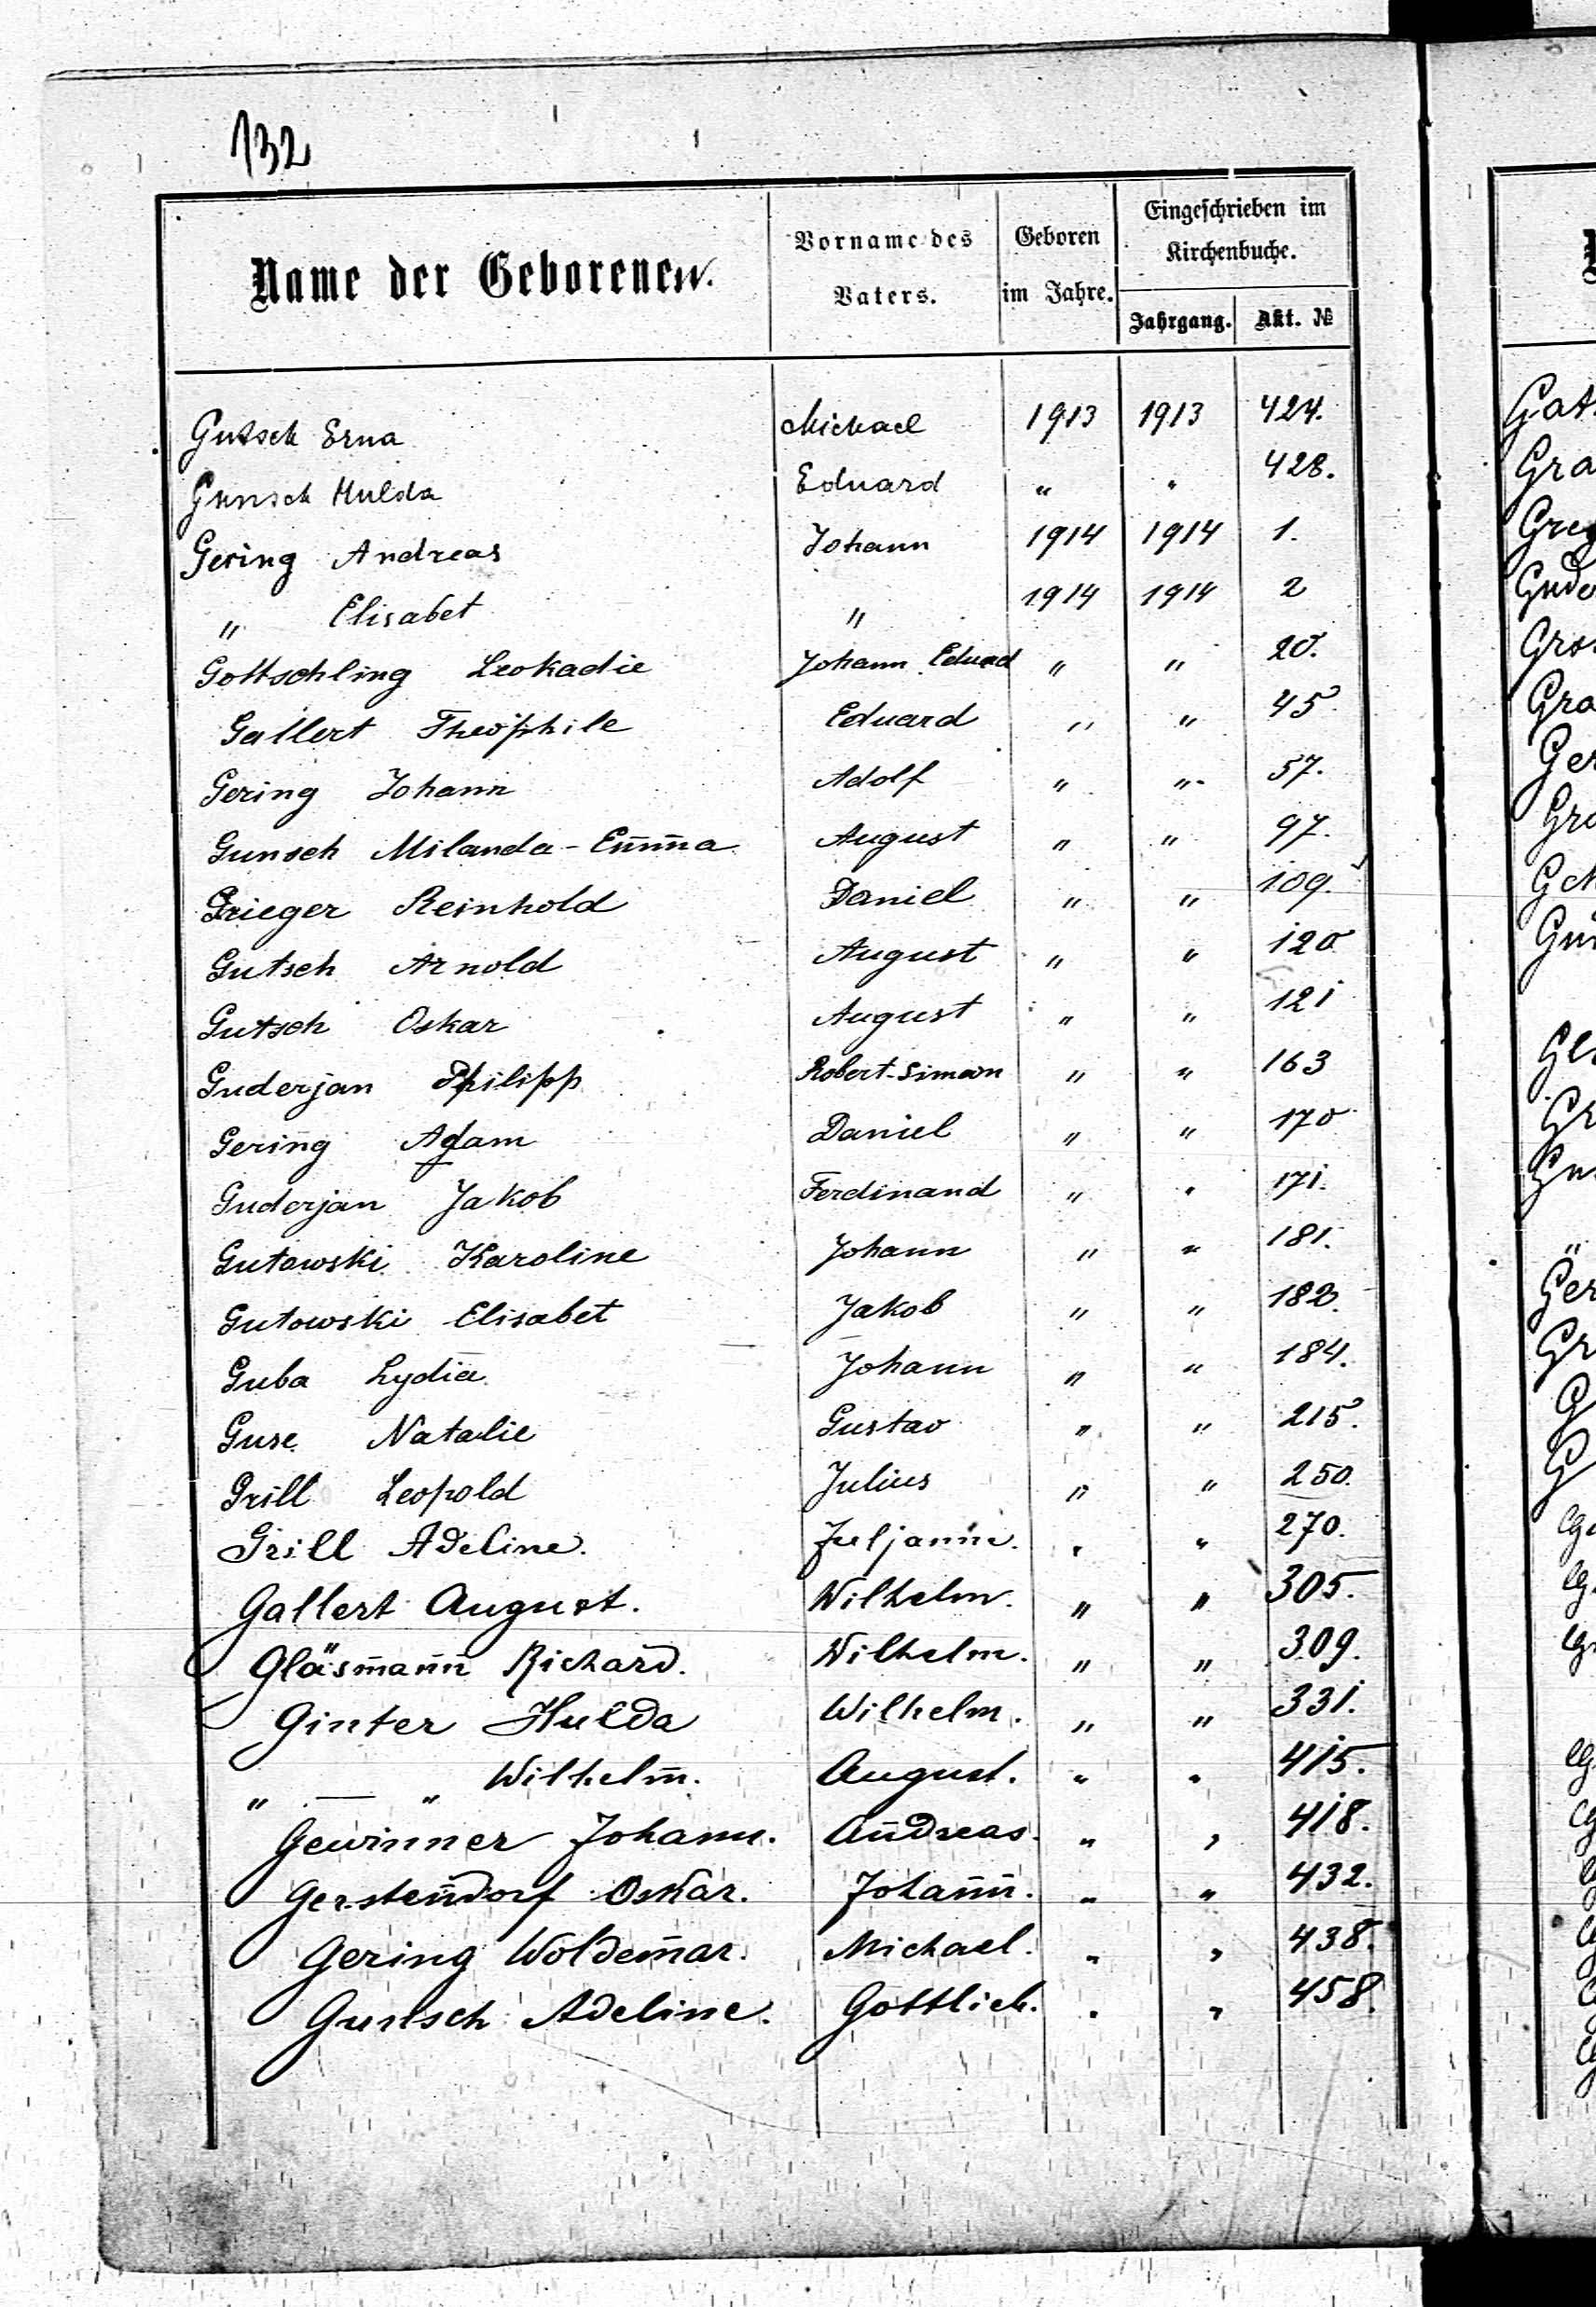 132
Name der Geborenen. Vorname des Vaters. Geboren im Jahre. Eingeschrieben im Kirchenbuche.
Jahrgang. Akt. №
Gutsch Erna Michael 1913 1913 424.
Gunsch Hulda Eduard " " 428.
Gering Andreas Johann 1914 1914 1.
" Elisabet " 1914 1914 2
Gottschling Leokadie Johann Eduard " " 20.
Gallert Theophile Eduard " " 45
Gering Johann Adolf " " 57.
Gunsch Milanda-Emma August " " 97.
Grieger Reinhold Daniel " " 109.
Gutsch Arnold August " " 120
Gutsch Oskar August " " 121
Guderjan Philipp Robert-Simon " " 163
Gering Adam Daniel " " 170
Guderjan Jakob Ferdinand " " 171.
Gutowski Karoline Johann " " 181.
Gutowski Elisabet Jakob " " 182.
Guba Lydia Johann " " 184.
Guse Natalie Gustav " " 215.
Grill Leopold Julius " " 250.
Grill Adeline. " " 270.
Gallert August. Wilhelm. " " 305.
Gläsmann Richard. Wilhelm. " " 309.
Ginter Hulda Wilhelm. " " 331.
" — " Wilhelm. August. " " 415.
Gewinner Johann. Andreas. " " 418.
Gerstendorf Oskar. Johann. " " 432.
Gering Woldemar. Michael. " " 438.
Gunsch Adeline. Gottlieb. " " 458.